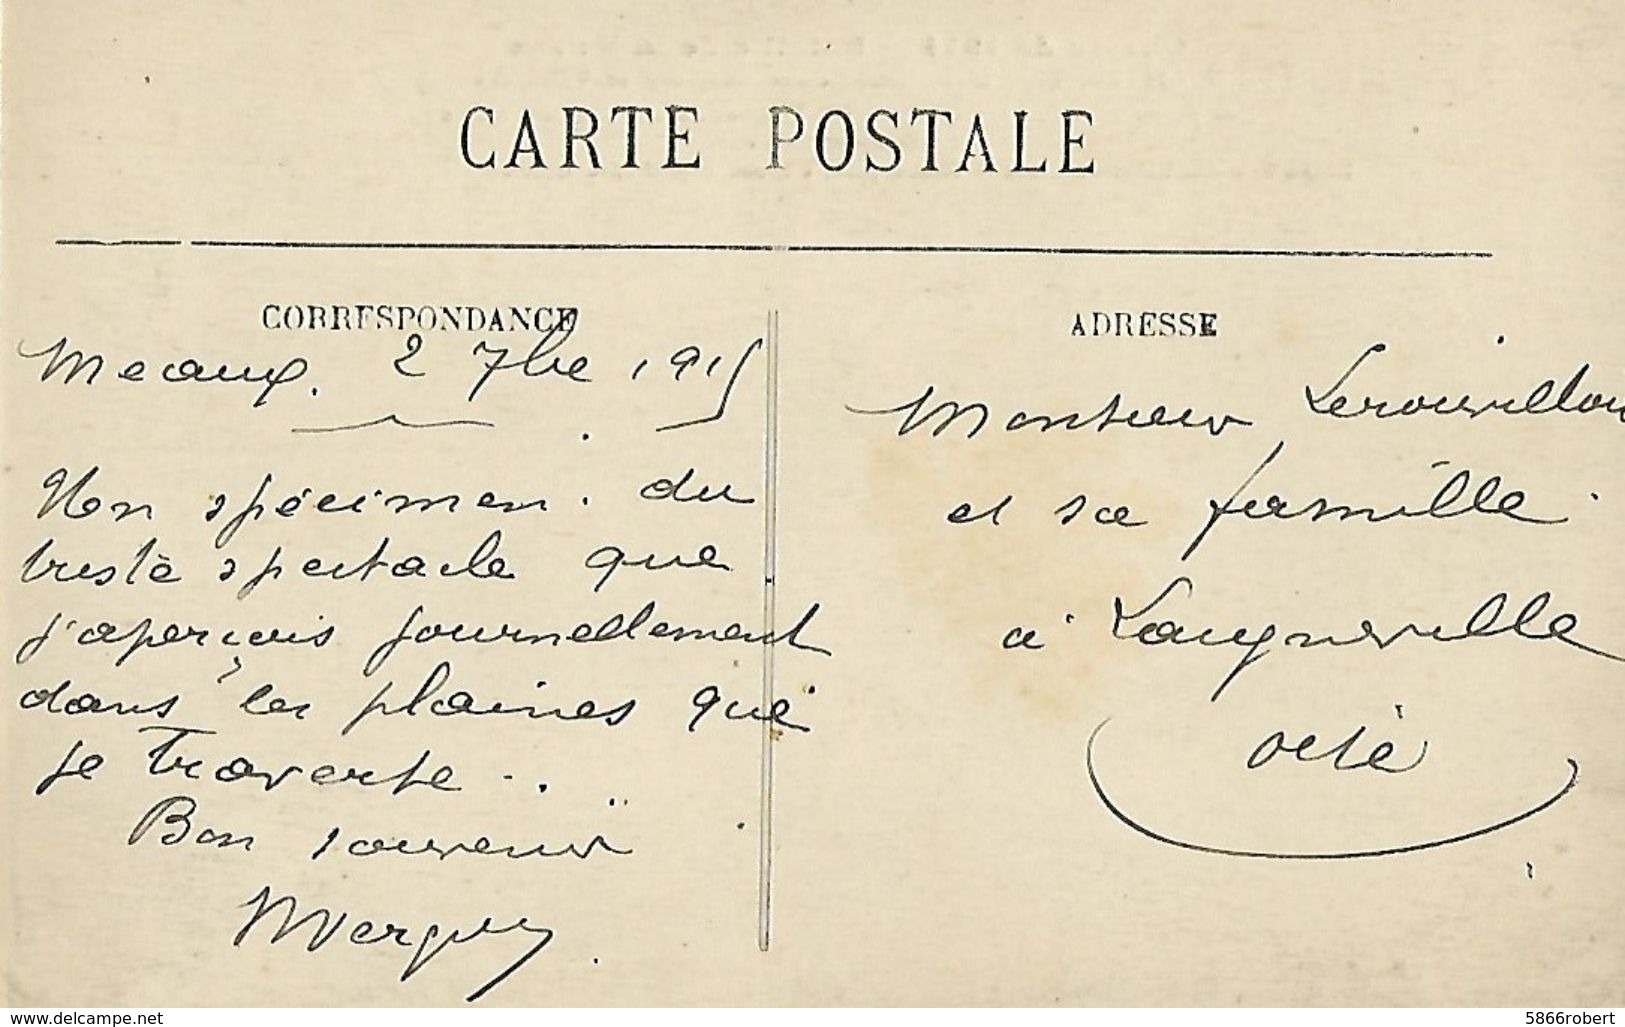 CARTE POSTALE
CORRESPONDANCE
Meaux. 2 7bre 1915
Un spécimen du
triste spectacle que
j'aperçois journellement
dans les plaines que
je traverse ..
Bon souvenir
ADRESSE
Monsieur Lerouvillon
et sa famille
à Laigneville
Oise
www.delcampe.net
5866robert